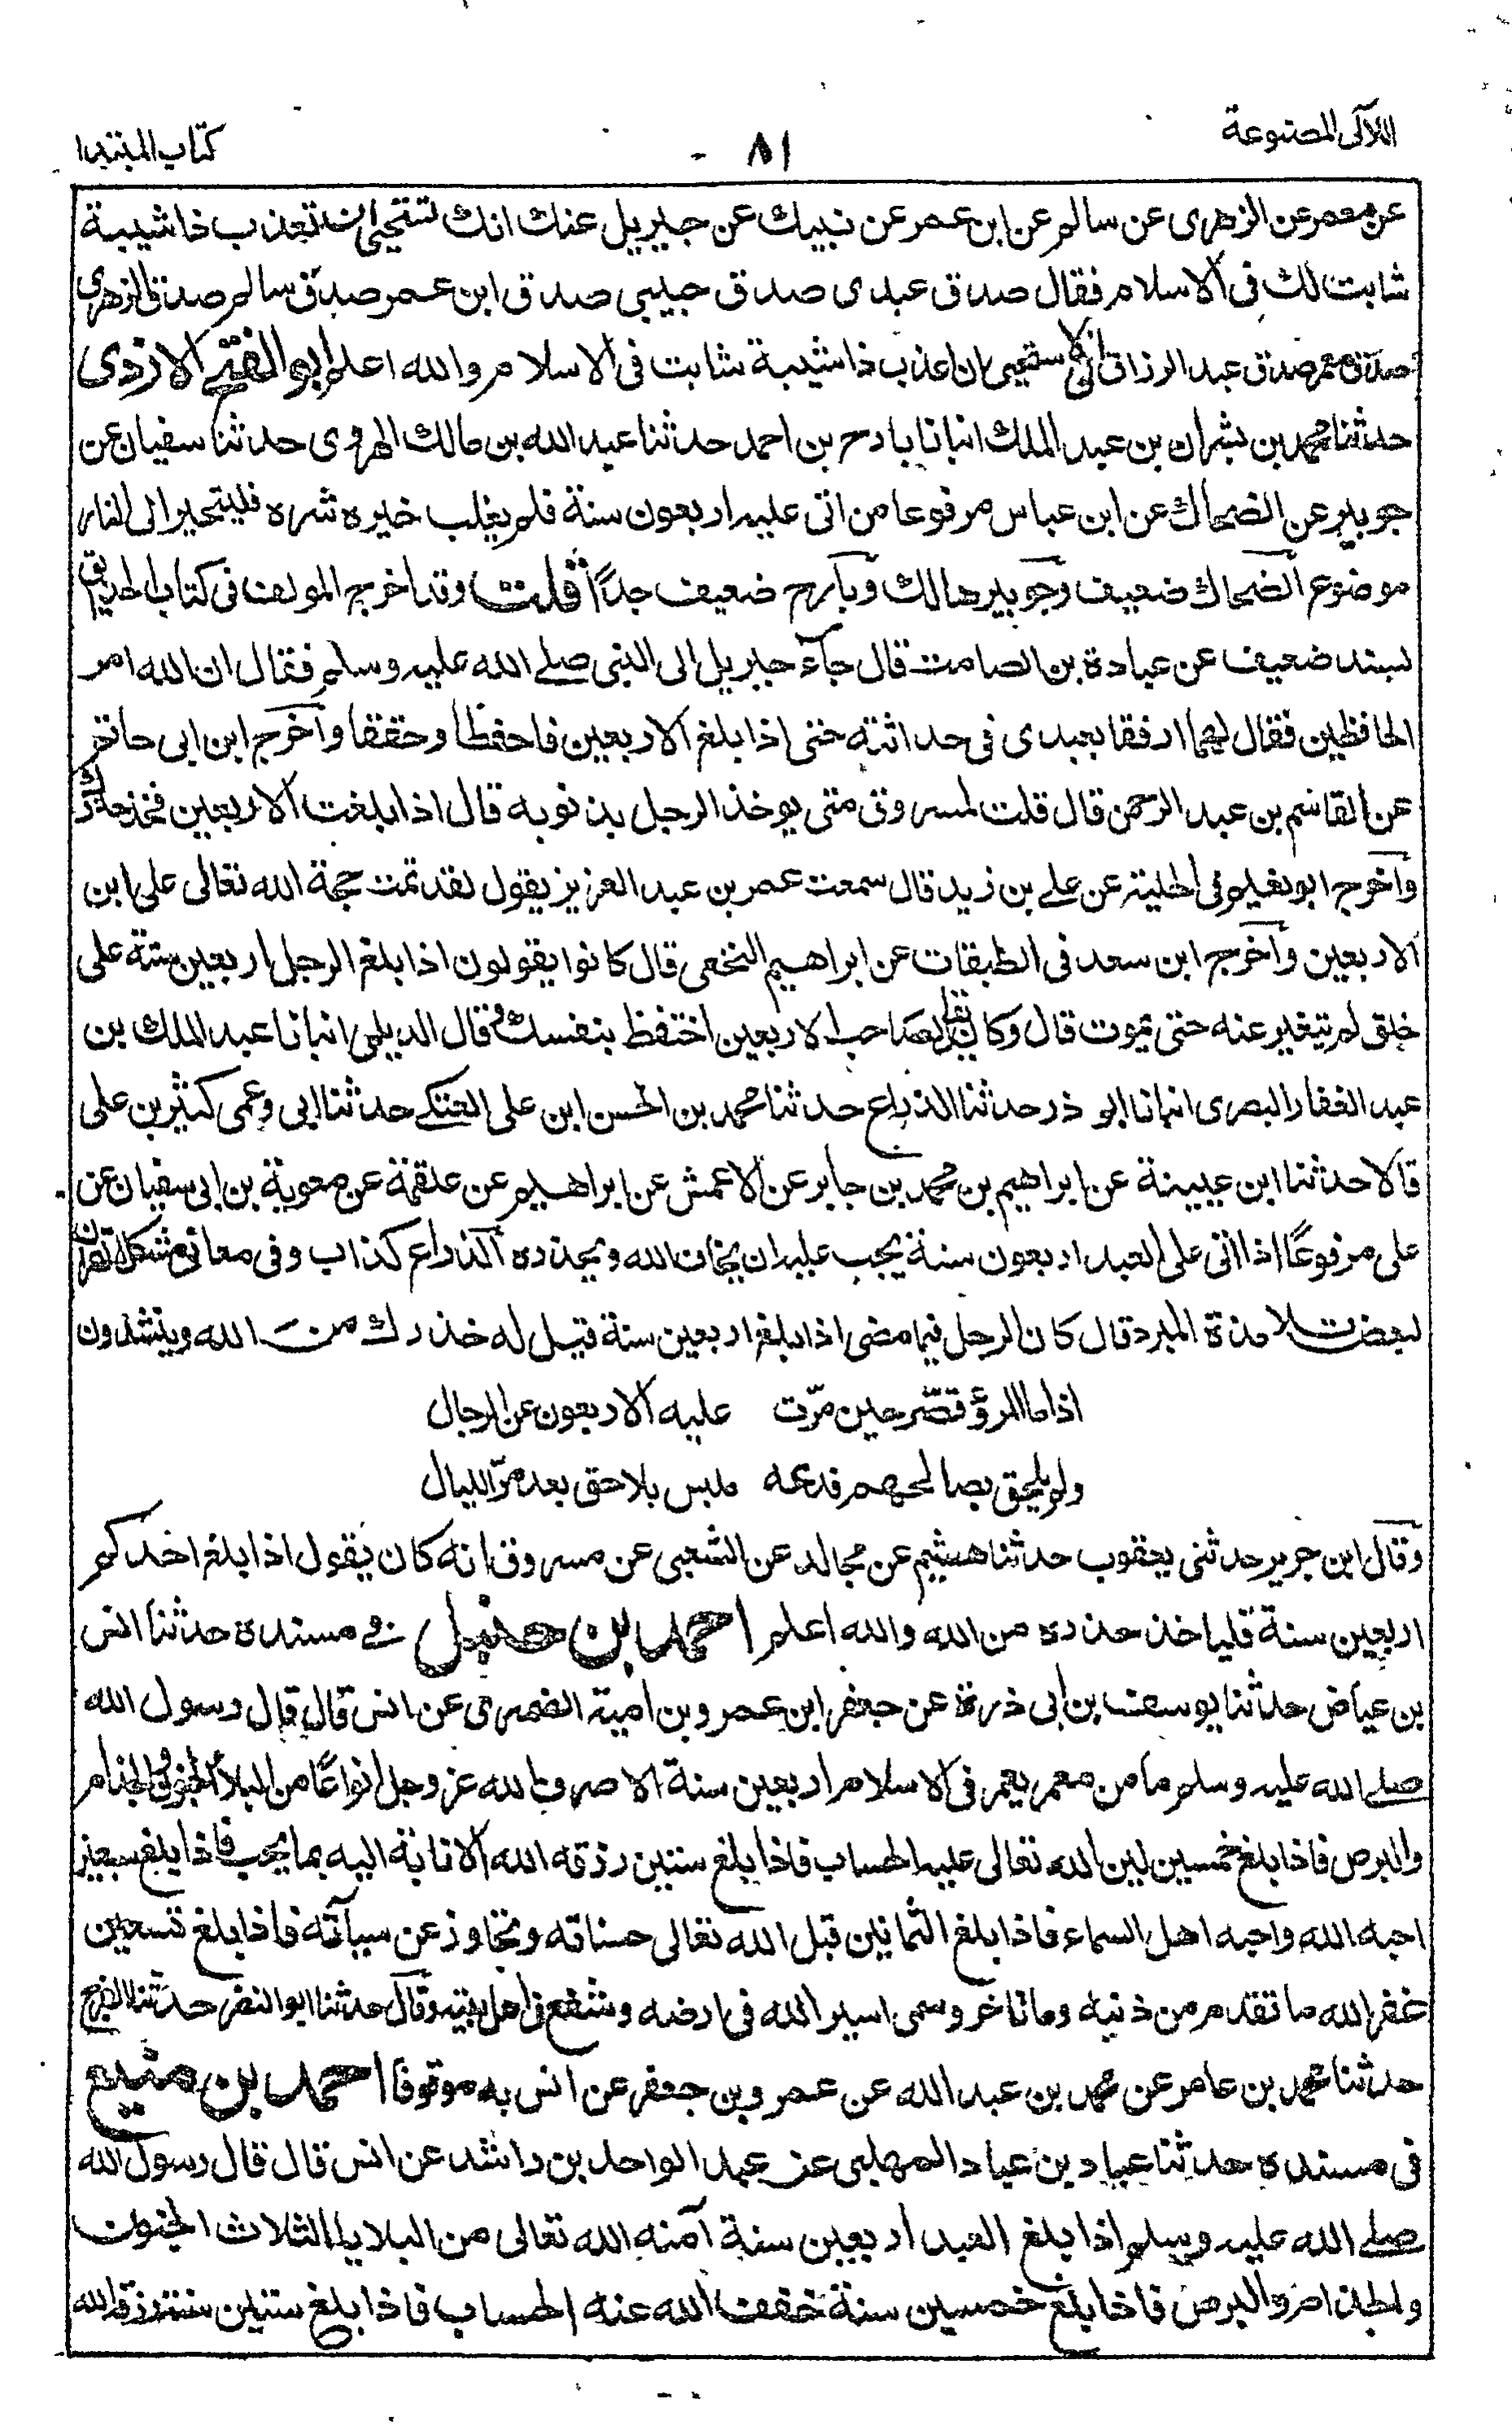 اللآلى المصنوعة
٨١
كتاب المبتدا
عن معمر عن الزهرى عن سالم عن ابن عمر عن نبيك عن جبريل عنك انك تستحيى ان تعذب ذا شيبة
شابت لك فى الاسلام فقال صدق عبدى صدق حبيبى صدق ابن عمر صدق سالم صدق الزهرى
صدق معمر صدق عبد الرزاق انى لاستحيى ان اعذب ذا شيبة شابت فى الاسلام والله اعلم ابو الفتح الازدى
حدثنا محمد بن بشران بن عبد الملك انبانا بادح بن احمد حدثنا عبد الله بن مالك الهروى حدثنا سفيان عن
جويبر عن الضحاك عن ابن عباس مرفوعا من اتى عليه اربعون سنة فلم يغلب خيره شره فليتجهز الى النار
موضوع الضحاك ضعيف وجويبر هالك وبارح ضعيف جداً قلت وقد اخرج المولف فى كتاب الحدايق
بسند ضعيف عن عبادة بن الصامت قال جآء جبريل الى النبى صلے الله عليه وسلم فقال ان الله امر
الحافظين فقال لهما ارفقا بعبدى فى حداثته حتى اذا بلغ الاربعين فاحفظا وحققا وآخرج ابن ابى حاتم
عن القاسم بن عبد الرحمن قال قلت لمسروق متى يوخذ الرجل بذنوبه قال اذا بلغت الاربعين فخذ حذرك
وآخرج ابو نعيم فى الحلية عن علے بن زيد قال سمعت عمر بن عبد العزيز يقول لقد تمت حجة الله تعالى على ابن
الاربعين وآخرج ابن سعد فى الطبقات عن ابراهيم النخعى قال كانوا يقولون اذا بلغ الرجل اربعين سنة على
خلق لم يتغير عنه حتى يموت قال وكان يقال لصاحب الاربعين احتفظ بنفسك وقال الديلمى انبانا عبد الملك بن
عبد الغفار البصرى انبانا ابو ذر حدثنا الذراع حدثنا محمد بن الحسن ابن على العتكے حدثنا ابى وعمى كثير بن على
قالا حدثنا ابن عيينة عن ابراهيم بن محمد بن جابر عن الاعمش عن ابراهيم عن علقمة عن معوية بن ابى سفيان عن
على مرفوعًا اذا اتى على العبد اربعون سنة يجب عليه ان يخاف الله ويحذره الذراع كذاب وفى معانى مشكل القران
لبعض تلامذة المبرد قال كان الرجل فيما مضى اذا بلغ اربعين سنة قيل له خذ رك من الله وينشدون
اذا ما المرؤ قصّر حين مرّت عليه الاربعون عن الرجال
ولم يلحق بصالحهم فدعه فليس بلاحق بعد مرّ الليال
وقال ابن جرير حدثنى يعقوب حدثنا هشيم عن مجالد عن الشعبى عن مسروق انه كان يقول اذا بلغ احدكم
اربعين سنة فلياخذ حذره من الله والله اعلم احمد بن حنبل فے مسنده حدثنا انس
بن عياض حدثنا يوسف بن ابى ذرة عن جعفر ابن عمرو بن امية الضمرى عن انس قال قال رسول الله
صلے الله عليه وسلم ما من معمر يعمر فى الاسلام اربعين سنة الا صرف الله عز وجل انواعًا من البلاء الجنون والجذام
والبرص فاذا بلغ خمسين لين الله تعالى عليه الحساب فاذا بلغ ستين رزقه الله الانابة اليه بما يحب فاذا بلغ سبعين
احبه الله واحبه اهل السماء فاذا بلغ الثمانين قبل الله تعالى حسناته وتجاوز عن سيآته فاذا بلغ تسعين
غفر الله ما تقدم من ذنبه وما تاخر وسمى اسير الله فى ارضه وشفع فى اهل بيته وقال حدثنا ابو النضر حدثنا الفرج
حدثنا محمد بن عامر عن محمد بن عبد الله عن عمرو بن جعفر عن انس به موقوفا احمد بن منيع
فى مسنده حدثنا عباد بن عباد المهلبى عن عبد الواحد بن راشد عن انس قال قال رسول الله
صلے الله عليه وسلم اذا بلغ العبد اربعين سنة آمنه الله تعالى من البلايا الثلاث الجنون
والجذام والبرص فاذا بلغ خمسين سنة خفف الله عنه الحساب فاذا بلغ ستين سنة رزقه الله